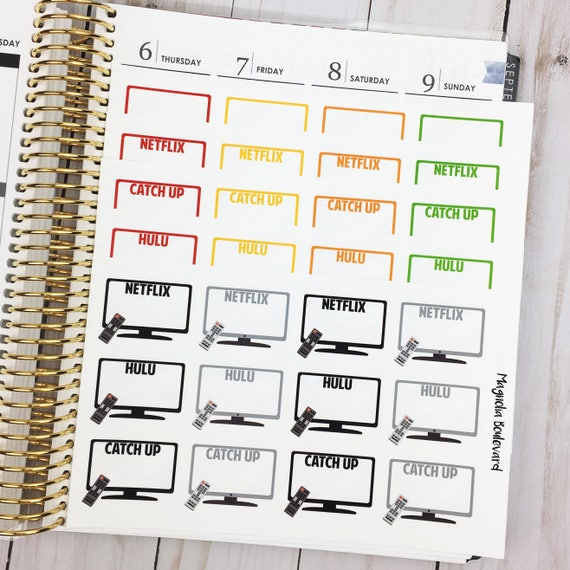 SDAY
6 THURSDAY 7 FRIDAY 8 SATURDAY 9 SUNDAY
SEPTE
NETFLIX NETFLIX NETFLIX NETFLIX
CATCH UP CATCH UP CATCH UP CATCH UP
HULU HULU HULU HULU
NETFLIX NETFLIX NETFLIX NETFLIX
HULU HULU HULU HULU
CATCH UP CATCH UP CATCH UP CATCH UP
Magnolia Boulevard